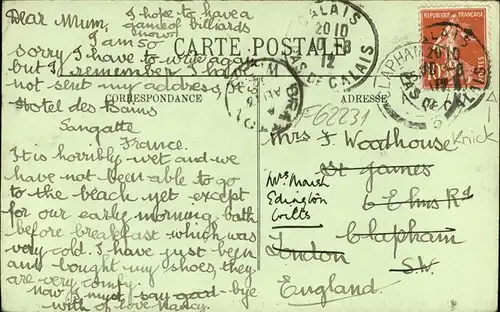 I hope to have a
game of billiards
now
Dear Mum,
I am so
CARTE POSTALE
sorry I have to write again
but I remember I have
not sent my address, it is
CORRESPONDANCE
ADRESSE
Hotel des Bains
Sangatte
France.
It is horribly wet and we
have not been able to go
to the beach yet except
for our early morning bath
before breakfast which was
very cold. I have just been
and bought my shoes, they
are very comfy
now I must say good-bye
with love Nancy.
CALAIS
20 10
12
PAS DE CALAIS
CLAPHAM
CALAIS
20 10
PAS DE CALAIS
RÉPUBLIQUE FRANÇAISE
10
F62231
Mrs F. Woodhouse
St James
6 Elms Rd
Clapham
London
S.W.
England.
Mrs Marsh
Edington
Wilts
Knick